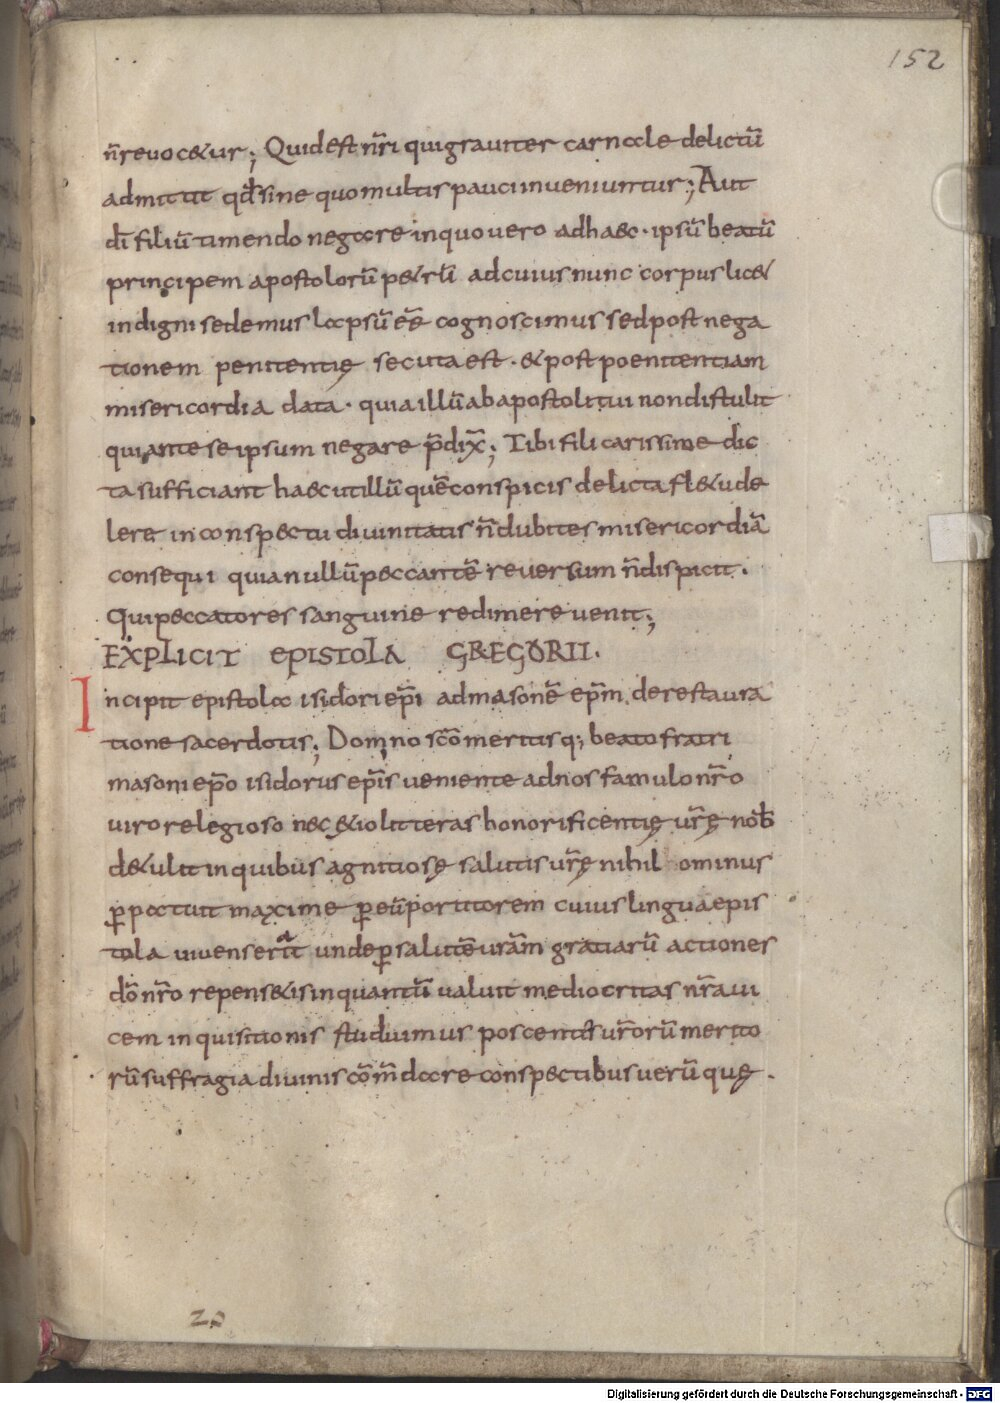 152
n̄ revocetur; Quid est nr̄i qui graviter carnale delictū
admittit qđ sine quo multis pauci inveniuntur; Aut
dī filiū timendo negare in quo vero ad haec · ipsū beatū
principem apostolorū petrū ad cuius nunc corpus licet
indigni sedemus lapsū ēē cognoscimus sed post nega
tionem penitentię secuta est · & post poenitentiam
misericordia data · quia illū ab apostolitui non distulit
qui ante se ipsum negare p̄dix̄; Tibi fili carissime dic
ta sufficiant haec ut illū quē conspicis delicta flet ude
lere in conspectu divinitatis n̄ dubites misericordiā
consequi quia nullū peccantē reversum n̄ dispicit ·
Qui peccatores sanguine redimere venit;
EXPLICIT EPISTOLA GREGORII.
Incipit epistola isidori ep̄i ad masonē ep̄m de restaura
tione sacerdotis; Domno sc̄o meritisq; beato fratri
masoni ep̄o isidorus ep̄is veniente ad nos famulo nr̄o
viro relegioso nec &io litteras honorificentię vr̄ę nob̄
detulit in quibus agnitiosę salutis vr̄ę nihil ominus
ꝑpatuit maxime ꝑ eū portitorem cuius lingua epis
tola vivens erat unde ꝑ salutē vrām gratiarū actiones
dō nr̄o repensetis in quantū valuit mediocritas nr̄a vi
cem inquisitionis studuimus poscentes vr̄orū merito
rū suffragia divinis cōm̄dare conspectibus verū quę ·
Digitalisierung gefördert durch die Deutsche Forschungsgemeinschaft · DFG